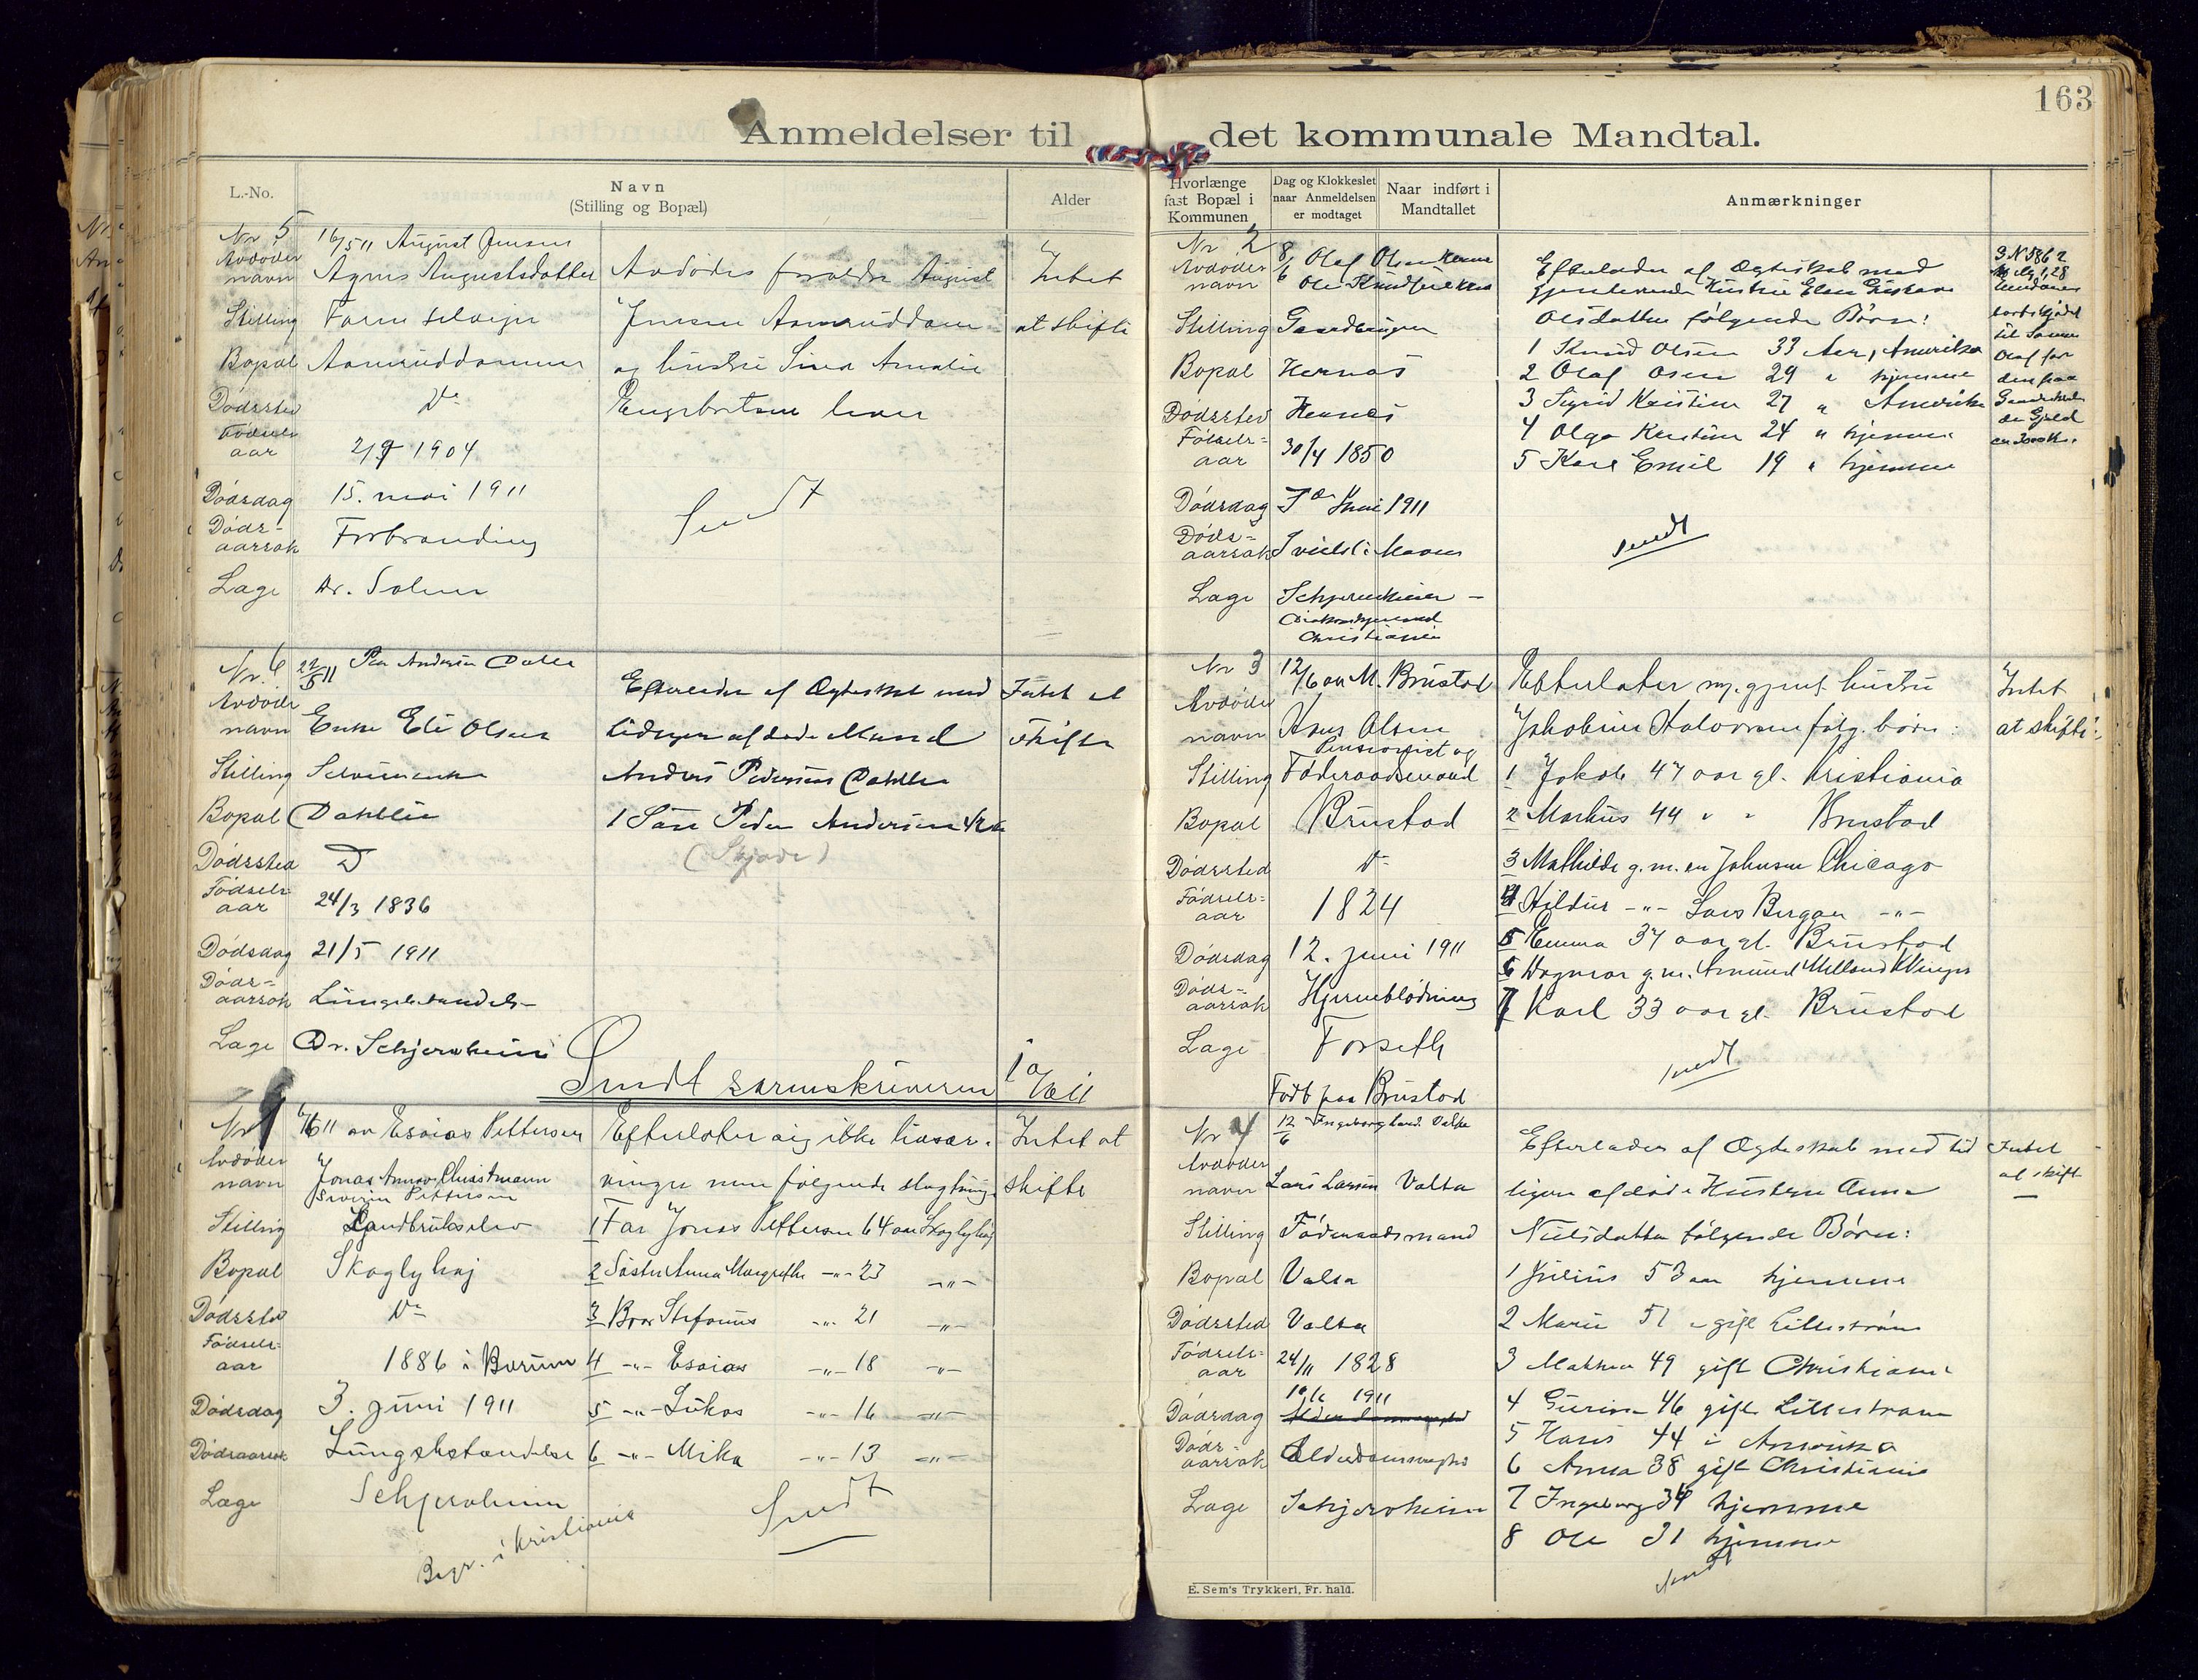 163
Anmeldelser til det kommunale Mandtal.
L.-No.
Navn
(Stilling og Bopæl)
Alder
Nr 5 16/5 11 August Jensen
Avdødes
navn Agnes Augustsdatter
Stilling
Bopæl Aamruddammen
Dødssted Do
Fødsels
aar 2/9 1904
Dødsdag 15. mai 1911
Døds-
aarsak Forbrænding
Læge Dr. Solem
Avdødes forældre August
Jensen Aamruddam
og hustru Sina Amalie
Engebretsen lever
Sendt
Intet
at skifte
Nr. 6 22/5 11 Per Andersen Dahle
Avdødes
navn Enke Eli Olsen
Stilling
Bopæl Dahlie
Dødssted D
Fødsels-
aar 24/3 1836
Dødsdag 21/5 1911
Døds-
aarsak Lungebetændelse
Læge Dr. Schjervheim
Efterlader af Ægteskab med
tidligere afdøde Mand
Anders Pedersen Dahlie
1 Søn Peder Andersen
Intet at
skifte
Sendt sorenskriveren
Nr 1 6/6 11 av Esaias Pettersen
Avdødes
navn Jonas Christmann
Severin Pettersen
Stilling Landbrukselev
Bopæl Skoglyhaj
Dødssted Do
Fødsels-
aar 1886 i Bærum
Dødsdag 3. juni 1911
Dødsaarsak Lungebetændelse
Læge Schjervheim
Begr. i Kristiania
Efterlater sig ikke livsar-
vinger men følgende slegtninge
1 Far Jonas Pettersen 64 aar Skoglyhøj
2 Søster Anna Margrethe -"- 23 -"-
3 Bror Stefanus -"- 21 -"-
4 -"- Esaias -"- 18 -"-
5 -"- Lukas -"- 16 -"-
6 -"- Mika -"- 13 -"-
Sendt
Intet at
skifte
Hvorlænge
fast Bopæl i
Kommunen
Dag og Klokkeslet
naar Anmeldelsen
er modtaget
Naar indført i
Mandtallet
Anmærkninger
Nr 2 8/6 Olaf Olsen
Avdødes
navn Ole Knudsen
Stilling Gaardbruger
Bopæl Hernæs
Dødssted Hernæs
Fødsels-
aar 30/4 1850
Dødsdag 7de Juni 1911
Døds-
aarsak
Læge Schjervheim -
Christiania
Efterlader af Ægteskab med
gjenlevende Hustru
Olsdatter følgende Børn:
1 Knud Olsen 33 Aar, Amerika
2 Olaf Olsen 29 " hjemme
3 Sigrid Kristine 27 " Amerika
4 Olga Kristine 24 " hjemme
5 Karl Emil 19 " hjemme
Sendt
Nr 3 12/6 av M. Brustad
Avdødes
navn Hans Olsen
Pensionist og
Stilling Føderaadsmand
Bopæl Brustad
Dødssted Do
Fødsels-
aar 1824
Dødsdag 12. juni 1911
Døds-
aarsak Hjerneblødning
Læge Forseth
Født paa Brustad
Efterlater m. gjenl. hustru
Jakobine Halvorsen følg. børn:
1 Jakob 47 aar gl. Kristiania
2 Markus 44 " " Brustad
3 Mathilde g. m. en Johnsen Chicago
4 Hildur -"- Lars Bergan -"-
5 Emma 37 aar gl. Brustad
6 Dagmar g. m. Amund Melland
7 Karl 33 aar gl. Brustad
Sendt
Intet
at skifte
Nr 4 12/6
Avdødes
navn Lars Larsen Valta
Stilling Føderaadsmand
Bopæl Valta
Dødssted Valta
Fødsels-
aar 24/11 1828
10/6 1911
Dødsdag
Døds-
aarsak Alderdomssvaghed
Læge Schjervheim
Efterlader af Ægteskab med tid
ligere afdøde Hustru Anne
Nielsdatter følgende Børn:
1 Julius 53 aar hjemme
2 Marie 51 " gift Lillestrøm
3 Mathea 49 gift Christiania
4 Gurine 46 gift Lillestrøm
5 Hans 44 i Amerika
6 Anna 38 gift Christiania
7 Ingeborg 34 hjemme
8 Ole 31 hjemme
Sendt
Intet
at skifte
E. Sem's Trykkeri, Fr.hald.